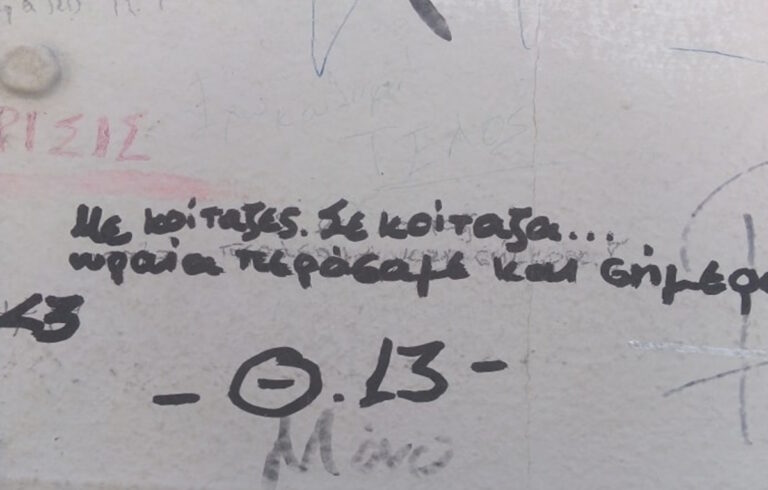 ΡΙΣΙΣ
ΤΕΛΟΣ
Με κοίταξες. Σε κοίταξα...
ωραία περάσαμε και σήμερα
<3
- Θ.13 -
Μόνο